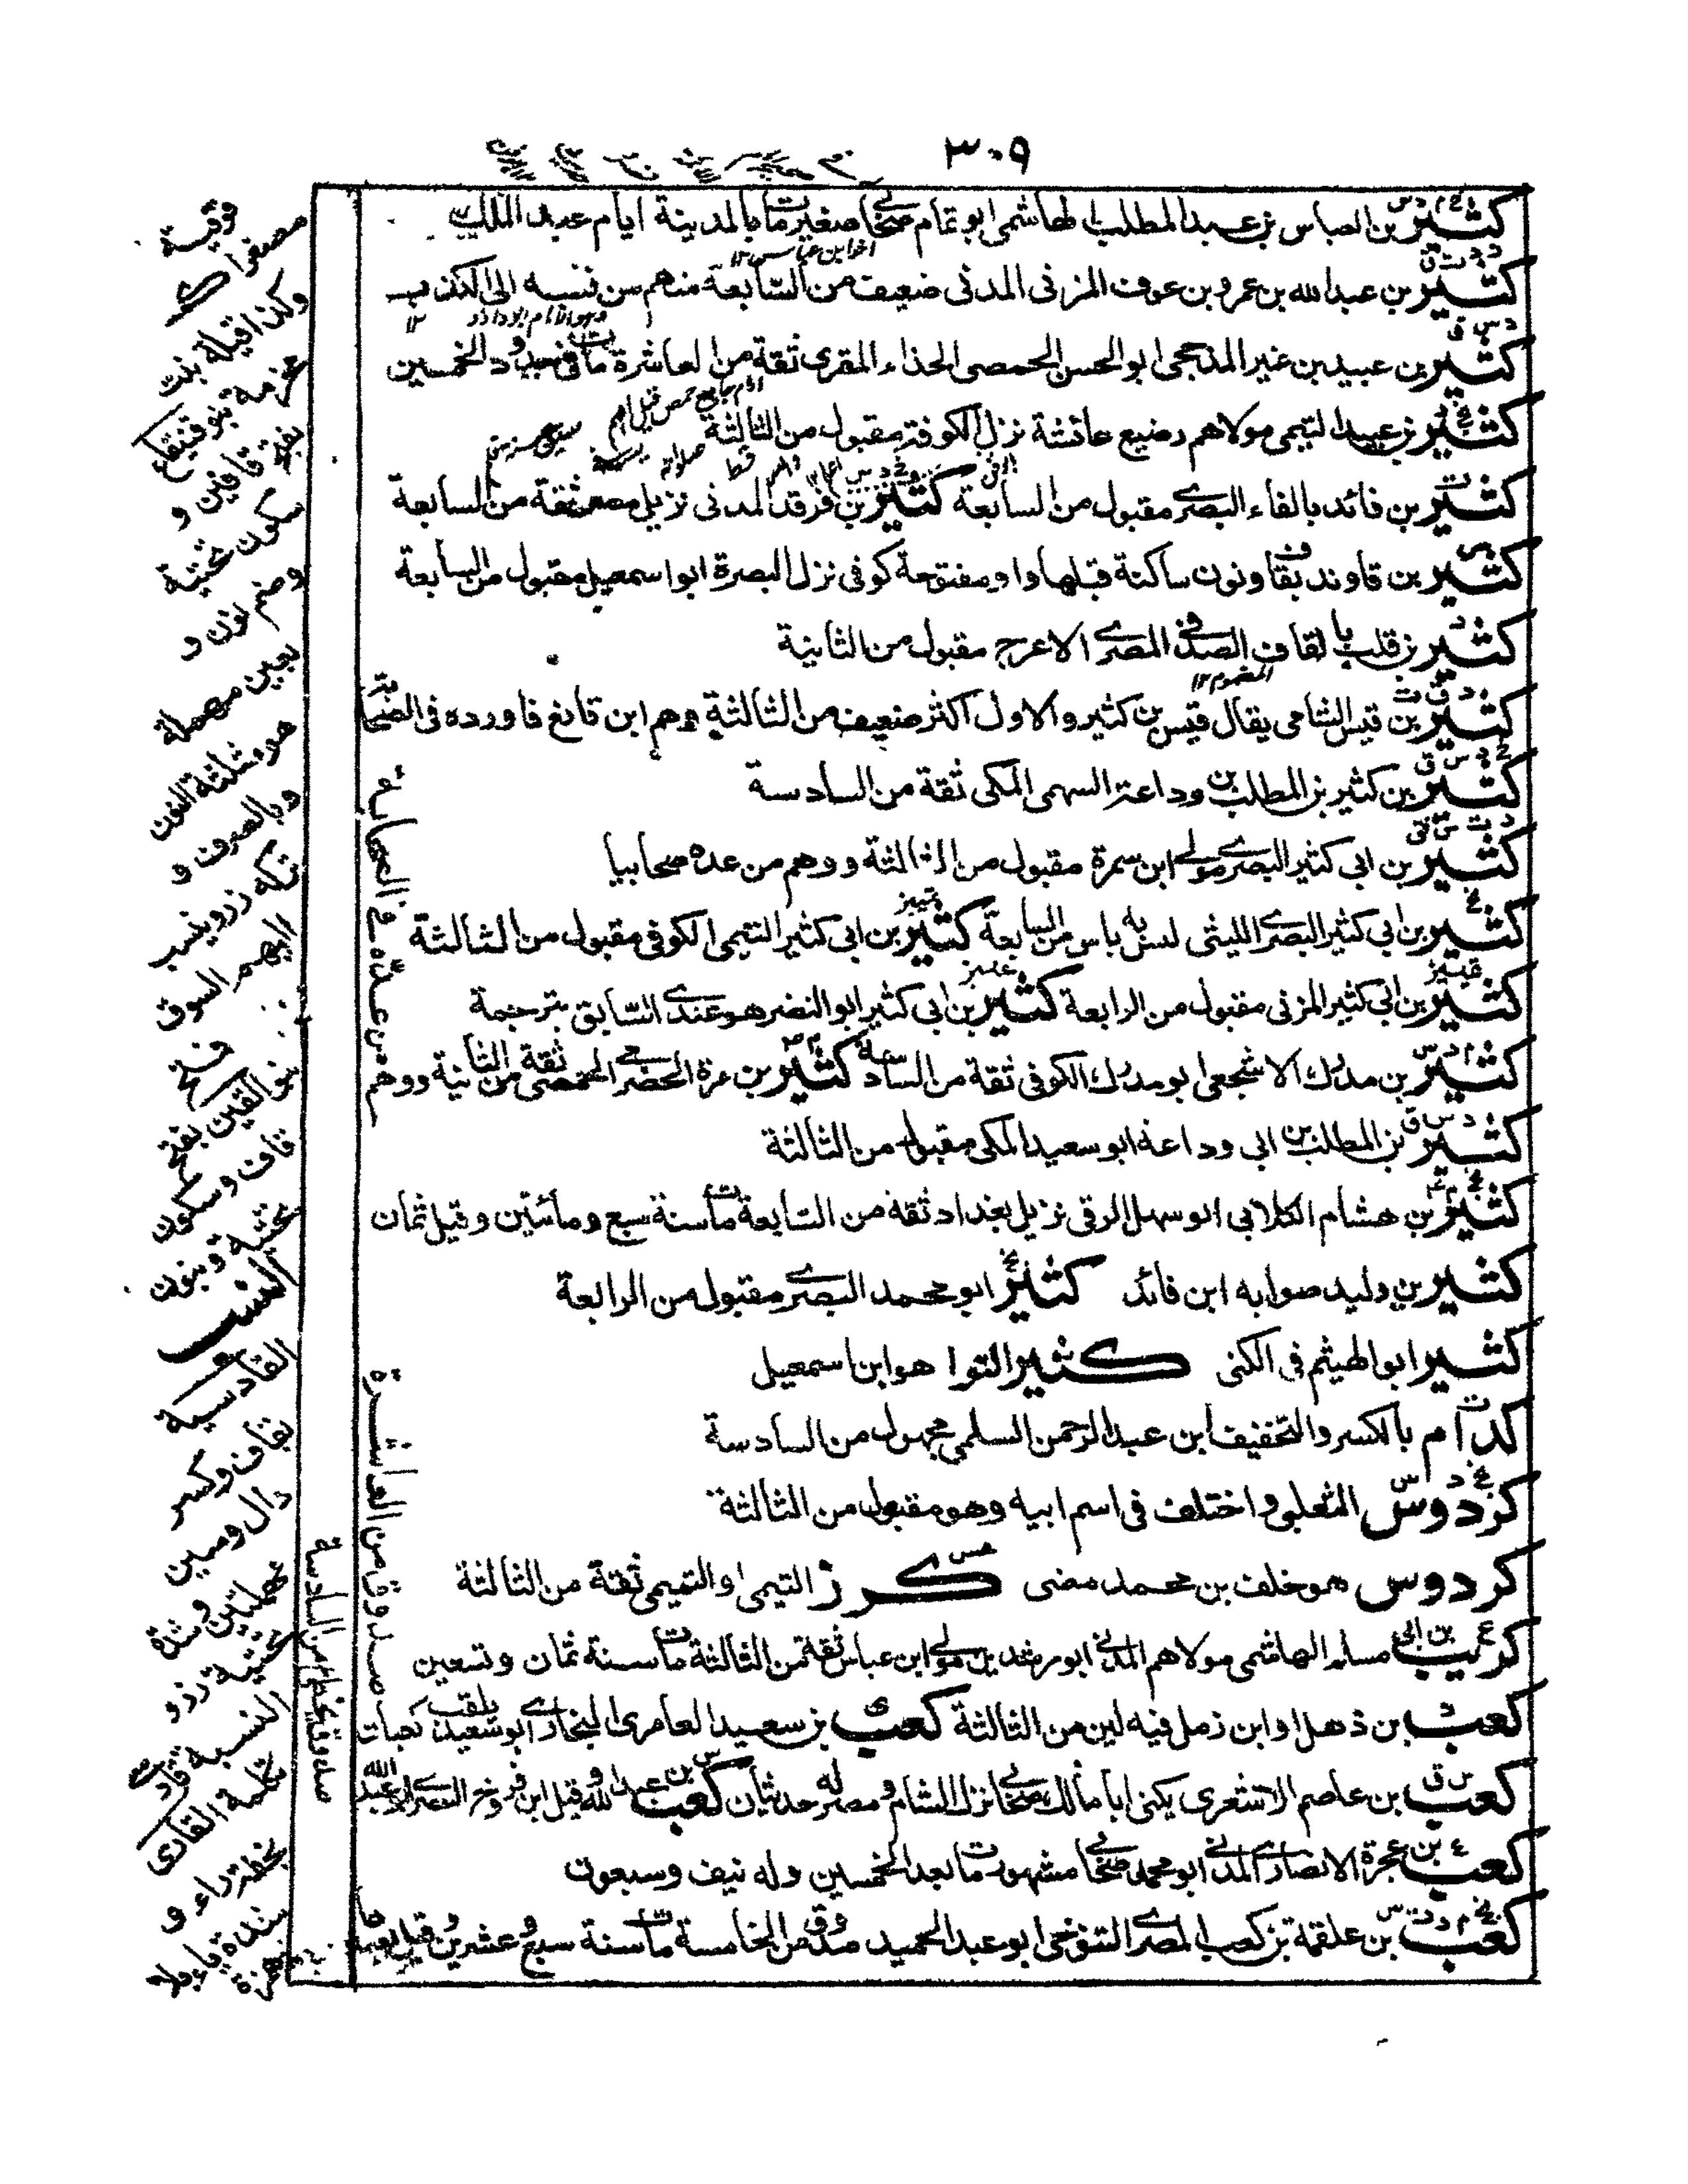 ٣٠٩
كثير بن العباس بن عبد المطلب الهاشمي ابو تمام صحابي صغير مات بالمدينة ايام عبد الملك
اخو ابن عباس ١٢
كثير بن عبد الله بن عمرو بن عوف المزنى المدنى ضعيف من السابعة منهم من نسبه الى الكذب
كثير بن عبيد بن نمير المذحجى ابو الحسن الحمصى الحذاء المقرى ثقة من العاشرة مات فى حدود الخمسين
كثير بن عبيد التيمى مولاهم رضيع عائشة نزل الكوفة مقبول من الثالثة
كثير بن فائد بالفاء البصرى مقبول من السابعة كثير بن فرقد المدنى نزيل مصر ثقة من السابعة
كثير بن قاوند بقاف ونون ساكنة قبلها واو مفتوحة كوفى نزل البصرة ابو اسمعيل مقبول من السابعة
كثير بن قليب بالقاف الصدفى المصرى الاعرج مقبول من الثانية
المضموم ١٢
كثير بن قيس الشامى يقال قيس بن كثير والاول اكثر ضعيف من الثالثة ووهم ابن قانع فاورده فى الصحابة
كثير بن كثير بن المطلب بن وداعة السهمى المكى ثقة من السادسة
كثير بن ابى كثير البصرى مولى ابن سمرة مقبول من الثالثة ووهم من عده صحابيا
كثير بن ابى كثير البصرى الليثى ليس به باس من السابعة كثير بن ابى كثير التيمى الكوفى مقبول من الثالثة
كثير بن ابى كثير المزنى مقبول من الرابعة كثير بن ابى كثير ابو النضر هو عندى السابق بترجمة
كثير بن مدرك الاشجعى ابو مدرك الكوفى ثقة من السادسة كثير بن مرة الحضرمى الحمصى ثقة من الثانية ووهم من عده فى الصحابة
كثير بن المطلب بن ابى وداعة ابو سعيد المكى مقبول من الثالثة
كثير بن هشام الكلابى ابو سهل الرقى نزيل بغداد ثقة من التاسعة مات سنة سبع ومائتين وقيل ثمان
كثير بن وليد صوابه ابن فائد كثير ابو محمد البصرى مقبول من الرابعة
كثير ابو الهيثم فى الكنى كثير النوا هو ابن اسمعيل
كدام بالكسر والتخفيف ابن عبد الرحمن السلمى مجهول من السادسة
كردوس الثعلبى واختلف فى اسم ابيه وهو مقبول من الثالثة
كردوس هو خلف بن محمد مضى كرز التيمى او التميمى ثقة من الثالثة
كريب بن ابى مسلم الهاشمى مولاهم المدنى ابو رشدين مولى ابن عباس ثقة من الثالثة مات سنة ثمان وتسعين
كعب بن ذهل او ابن زمل فيه لين من الثالثة كعب بن سعيد العامرى البخارى ابو سعيد يلقب كعبان صدوق من العاشرة
كعب بن عاصم الاشعرى يكنى ابا مالك صحابى نزل الشام ومصر له حديثان كعب بن عبد الله وقيل ابن فروخ البصرى ابو عبد الله صدوق يخطى من السادسة
كعب بن عجرة الانصارى المدنى ابو محمد صحابى مشهور مات بعد الخمسين وله نيف وسبعون
كعب بن علقمة بن كعب المصرى التنوخى ابو عبد الحميد صدوق من الخامسة مات سنة سبع وعشرين وقيل بعدها
فوقية
مصغرا
وكذا قيلة بنت
مخرمة بنو قينقاع
بفتح قافين و
سكون تحتية
وضم نون و
بعين مهملة
هو مثلثة النون
وبالصرف و
تركه
اليهم السوق
بنو القين بفتح
قاف وسكون
تحتية وبنون
النسب
القادسية
بقاف وكسر
دال وسين
مهملتين وشدة
تحتية
النسبة
القارى
بخفة راء و
شدة ياء بلا
همزة